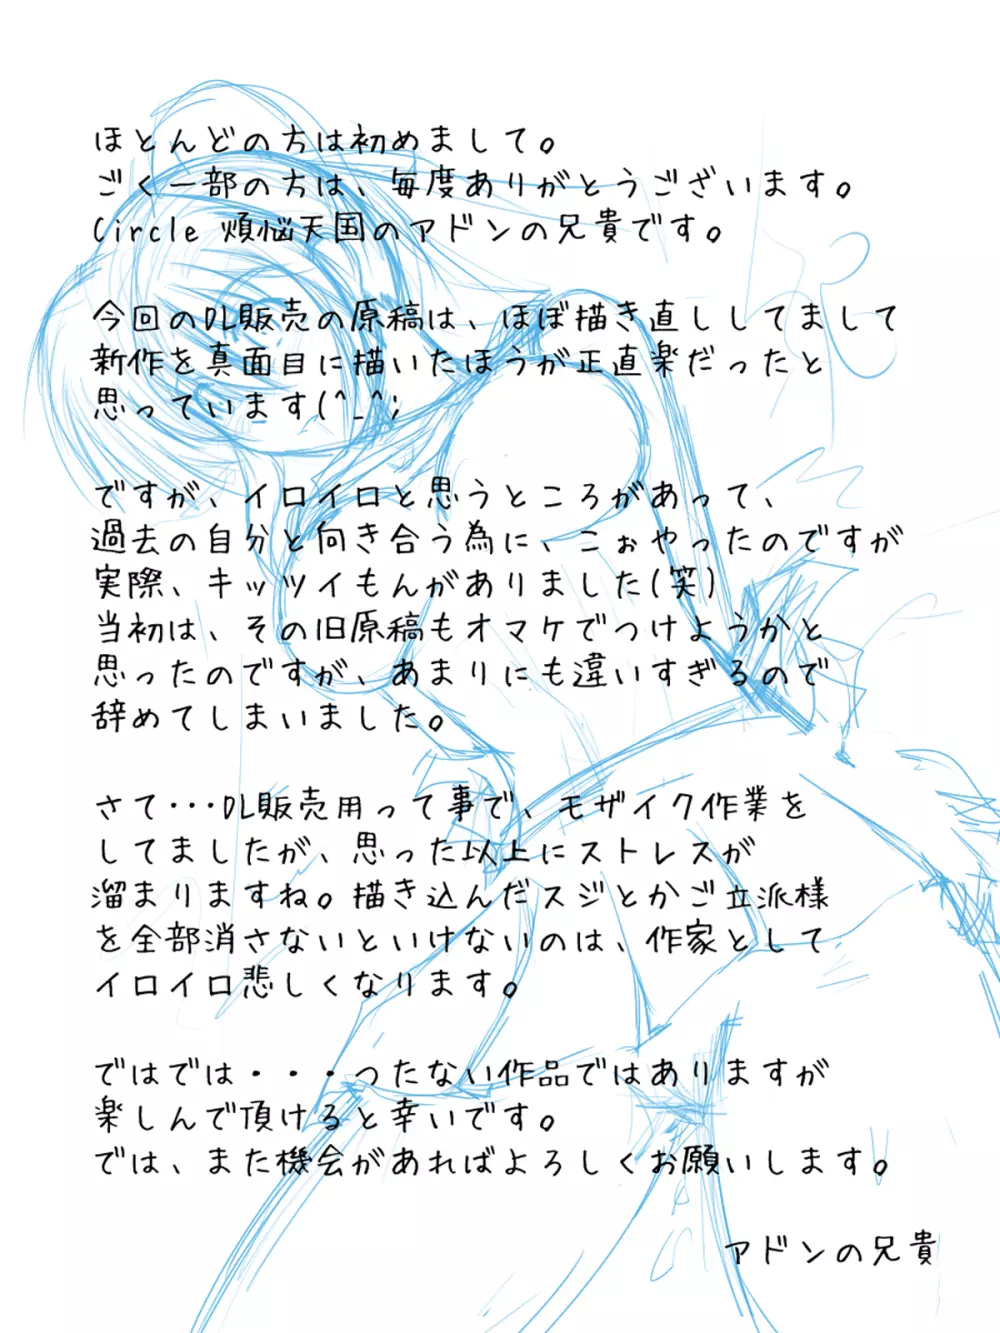 ほとんどの方は初めまして。
ごく一部の方は、毎度ありがとうございます。
Circle 煩悩天国のアドンの兄貴です。
今回のDL販売の原稿は、ほぼ描き直ししてまして
新作を真面目に描いたほうが正直楽だったと
思っています(^_^;
ですが、イロイロと思うところがあって、
過去の自分と向き合う為に、こぉやったのですが
実際、キッツイもんがありました(笑)
当初は、その旧原稿もオマケでつけようかと
思ったのですが、あまりにも違いすぎるので
辞めてしまいました。
さて・・・DL販売用って事で、モザイク作業を
してましたが、思った以上にストレスが
溜まりますね。描き込んだスジとかご立派様
を全部消さないといけないのは、作家として
イロイロ悲しくなります。
ではでは・・・つたない作品ではありますが
楽しんで頂けると幸いです。
では、また機会があればよろしくお願いします。
アドンの兄貴